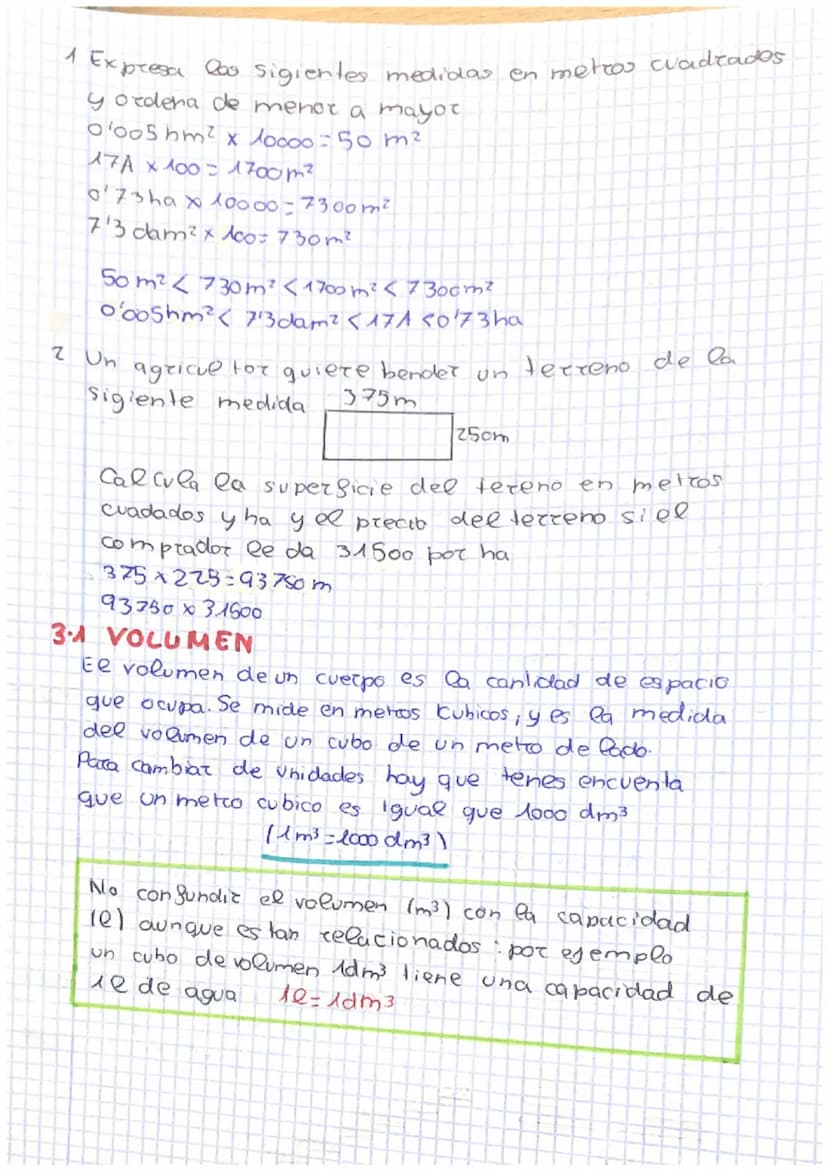 1 Expresa las sigientes medidas en metros cuadrados
y ordena de menor a mayor
0'005hm² x 10000=50 m²
17A x 100= 1700m²
0'73ha x 10000=7300m²
7'3 dam² x 100= 730m²
50m² < 730m² < 1700m² < 7300m²
0'005hm² < 7'3dam² < 17A < 0'73ha
2 Un agricultor quiere bender un terreno de la
sigiente medida 375m
250m
Calcula la superficie del tereno en metros
cuadados y ha y el precio del terreno si el
comprador le da 31500 por ha
375 x 225=93750 m
93750 x 31500
3.1 VOLUMEN
El volumen de un cuerpo es la cantidad de espacio
que ocupa. Se mide en metros cubicos, y es la medida
del volumen de un cubo de un metro de lado.
Para cambiar de unidades hay que tenes encuenta
que un metro cubico es igual que 1000 dm³
(1m³=1000 dm³)
No confundir el volumen (m³) con la capacidad
(l) aunque estan relacionados : por ejemplo
un cubo de volumen 1dm³ tiene una capacidad de
1l de agua 1l=1dm³